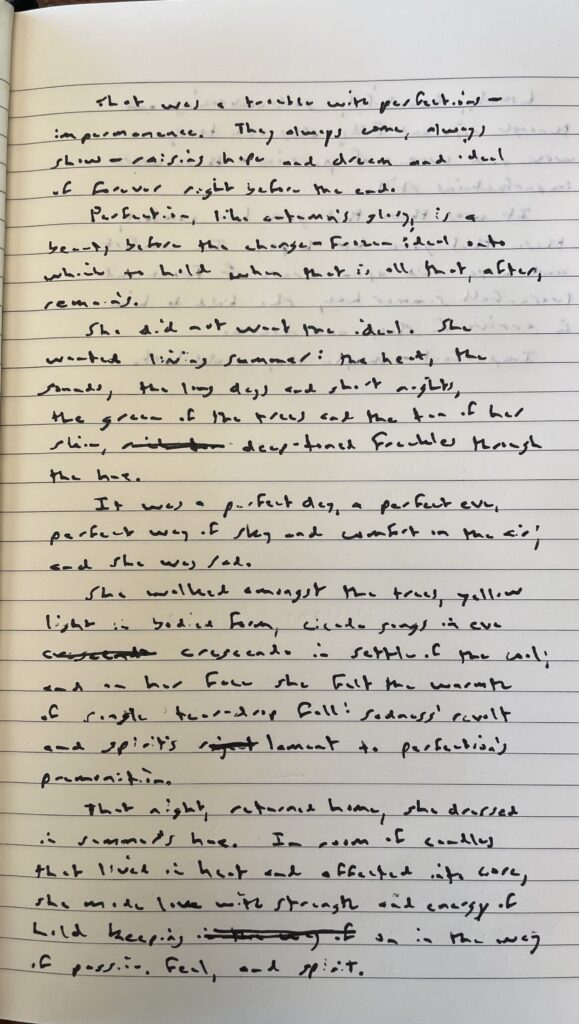 That was a trouble with perfections—
impermanence. They always come, always
show—raising hope and dream and ideal
of forever right before the end.
Perfection, like autumn's glory, is a
beauty before the change—frozen ideal onto
which to hold when that is all that, after,
remains.
She did not want the ideal. She
wanted living summer: the heat, the
sounds, the long days and short nights,
the green of the trees and the tan of her
skin, deep-toned freckles through
the hue.
It was a perfect day, a perfect eve,
perfect way of sky and comfort in the air;
and she was sad.
She walked amongst the trees, yellow
light in bodied form, cicada songs in eve
crescendo crescendo in settle of the cool;
and on her face she felt the warmth
of single tear-drop fall: sadness' revolt
and spirit's lament to perfection's
premonition.
That night, returned home, she dressed
in summer's hue. In room of candles
that lived in heat and affected into core,
she made love with strength and energy of
hold keeping in the way of on in the way
of passion, feel, and spirit.